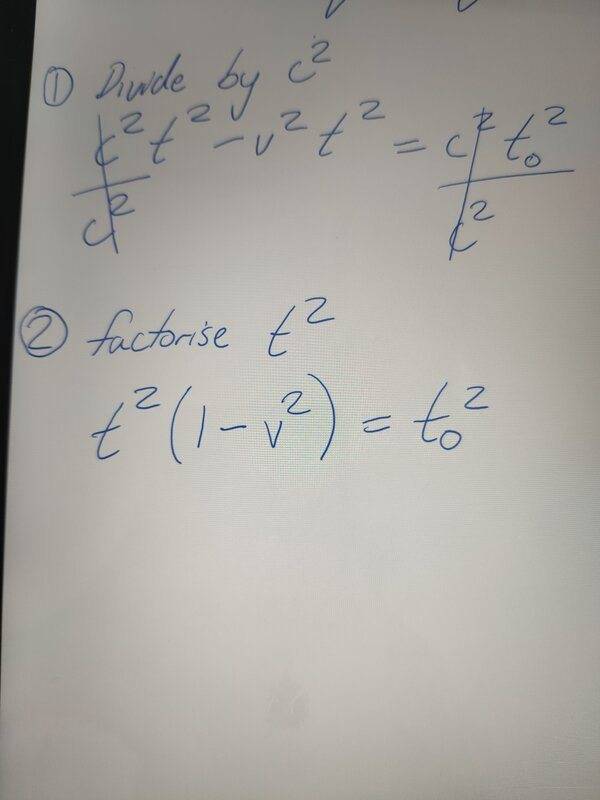 ① Divide by c²
c²t² - v²t² = c² t₀²
c² c²
② factorise t²
t² (1 - v²) = t₀²